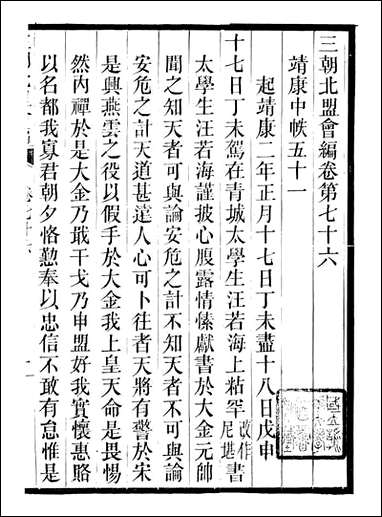 三朝北盟會編卷第七十六
靖康中帙五十一
起靖康二年正月十七日丁未盡十八日戊申
十七日丁未駕在青城太學生汪若海上粘罕改作尼堪書
太學生汪若海謹披心腹露情愫獻書於大金元帥
聞之知天者可與論安危之計不知天者不可與論
安危之計天道甚遠人心可卜往者天將有警於宋
是興燕雲之役以假手於大金我上皇天命是畏惕
然內禪於是大金乃戢干戈乃申盟好我實懷惠賂
以名都我寡君朝夕恪懃奉以忠信不敢有怠惟是